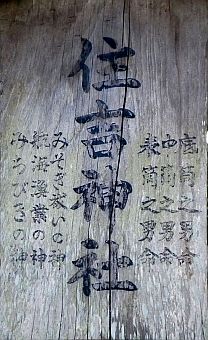 住吉神社
底筒之男命
中筒之男命
表筒之男命
みそぎ祓いの神
航海漁業の神
みちびきの神